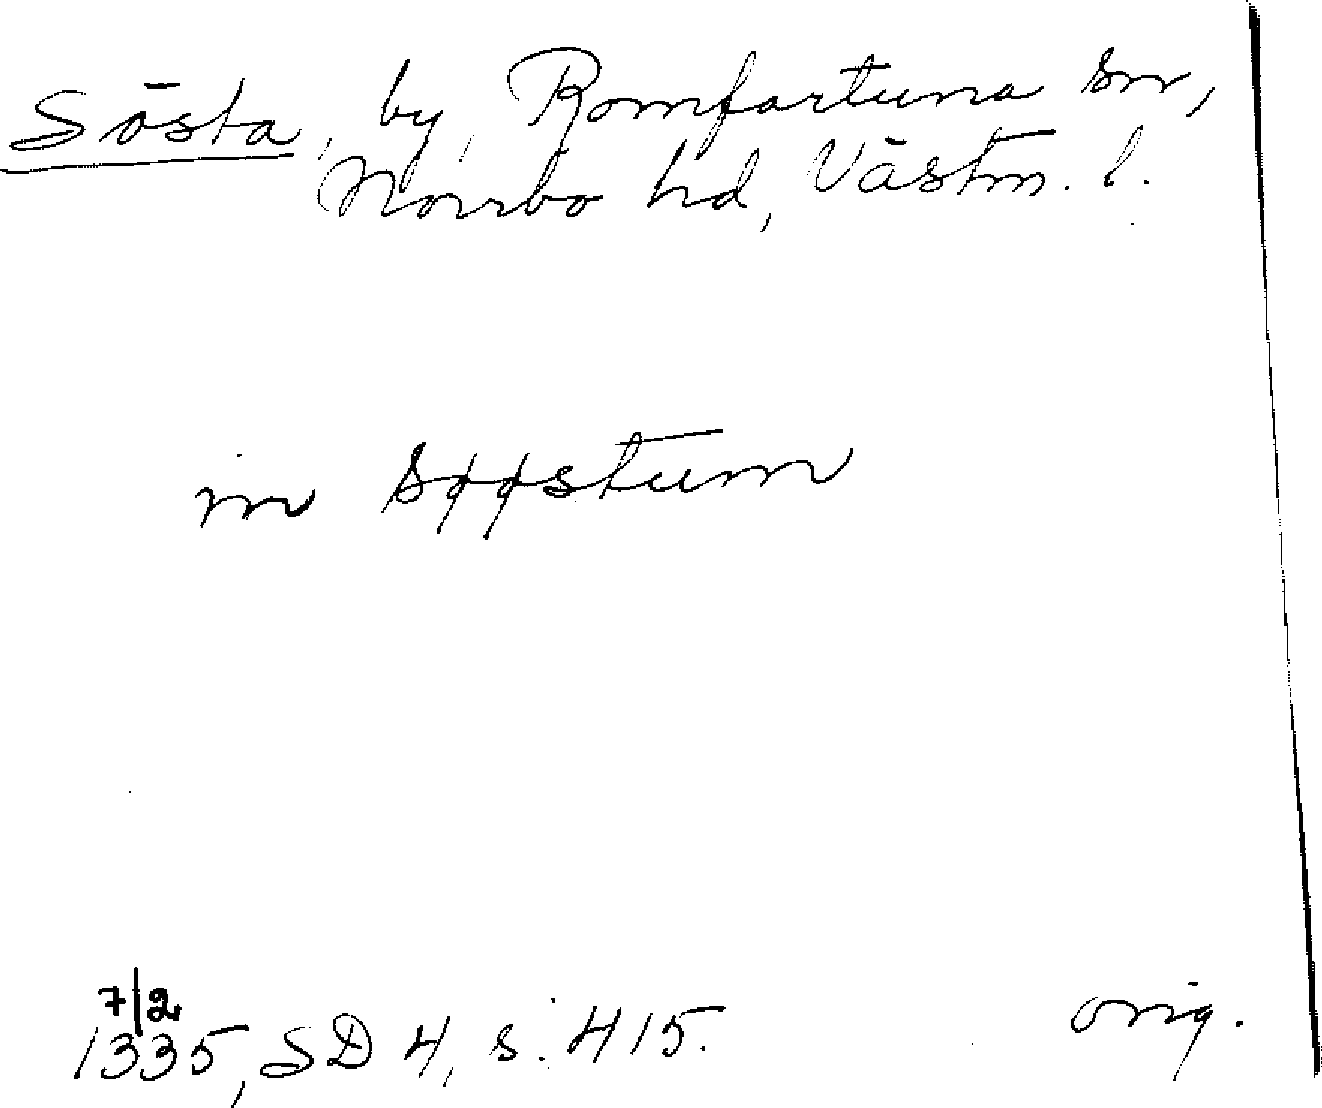 Sösta, by, Romfartuna sn,
Norrbo hd, Västm. l.
in Søøstum
7/2
1335, SD 4, s. 415.
orig.